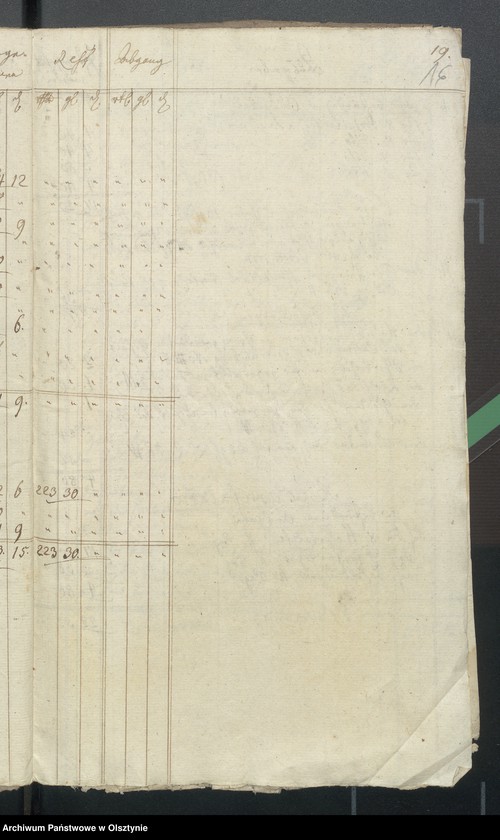 19.
16
Rest Abgang
gl ₰ rtl gl ₰
12
9
6.
9.
6 223 30.
9
15. 223 30.
Archiwum Państwowe w Olsztynie